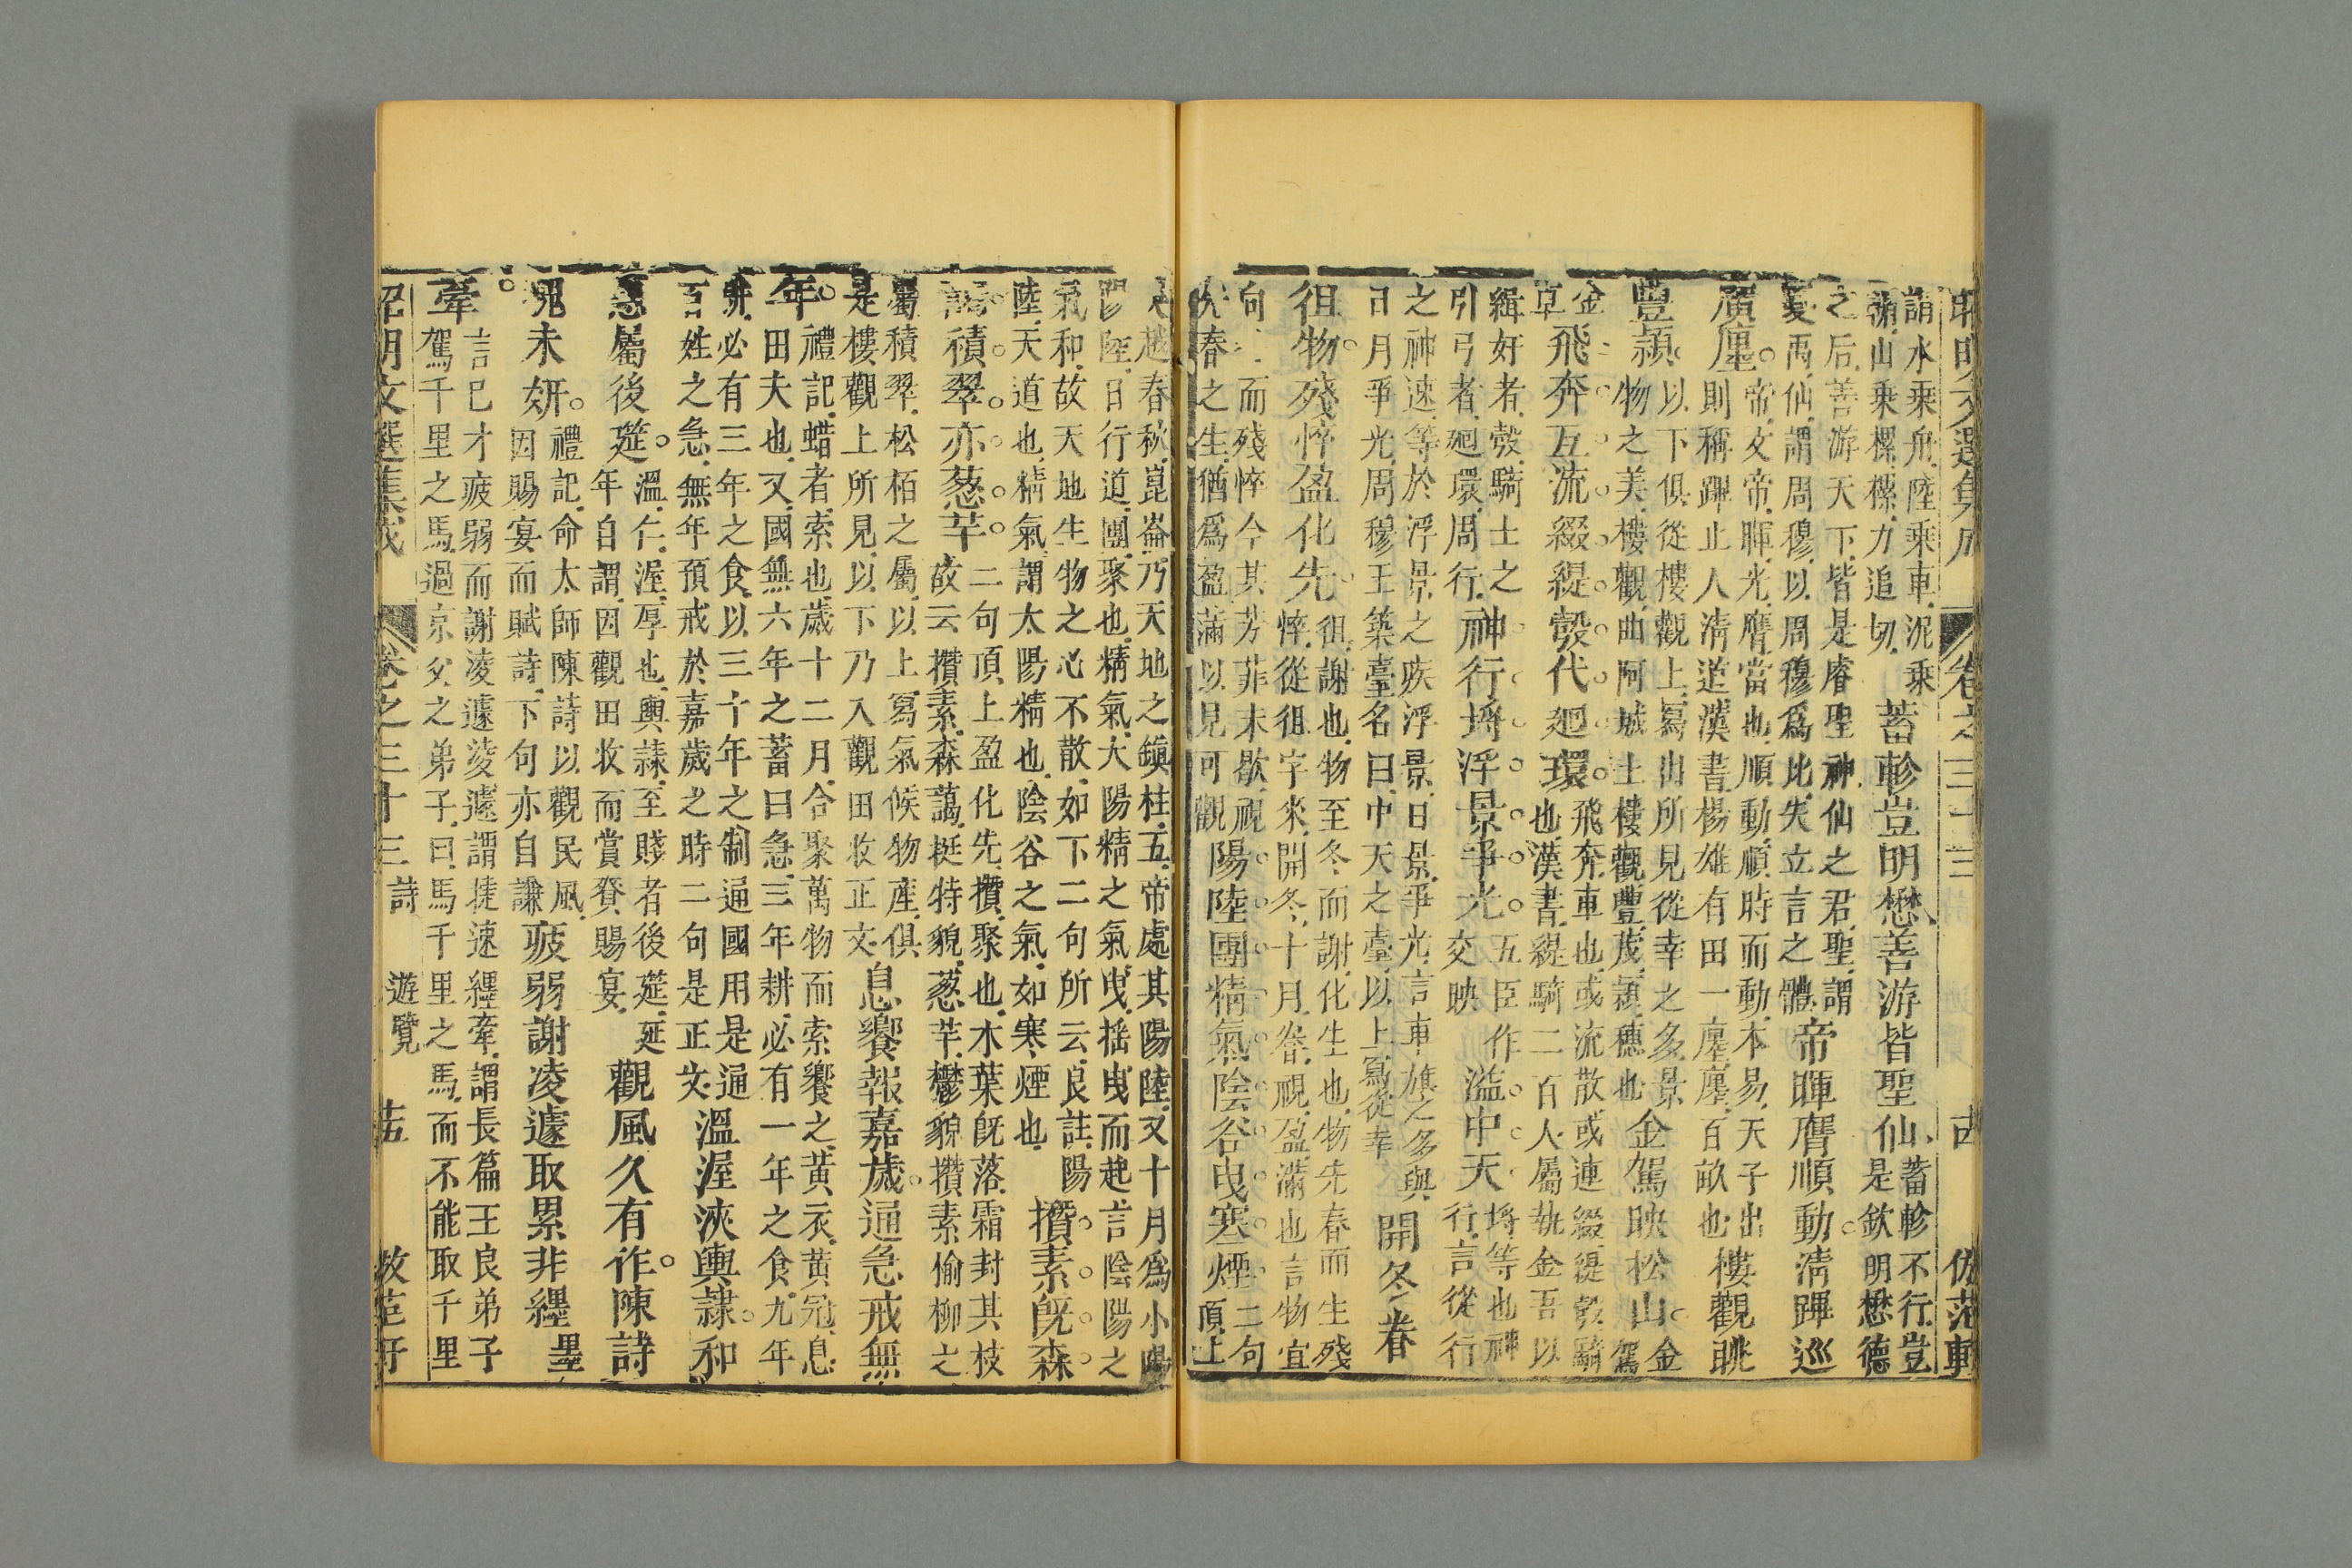 昭明文選集成 卷之三十三 倣范軒
謂水乘舟陸乘車泥乘
輴山乘樏樏力追切
蓄軫豈明懋善游皆聖仙
蓄軫不行豈
是欽明懋德
之后善游天下皆是睿聖神仙之君聖謂
夏禹仙謂周穆以周穆爲比失立言之體
帝暉膺順動清蹕巡
廣廛
帝文帝暉光膺當也順動順時而動本易天子出
則稱蹕止人清道漢書楊雄有田一廛廛百畝也
樓觀眺
豐頴
以下俱從樓觀上寫出所見從幸之多景
物之美樓觀曲阿城土樓觀豐茂頴穗也
金駕映松山
金
駕
金
草
飛奔互流綴緹彀代廻環
飛奔車也或流散或連綴緹彀騎
也漢書緹騎二百人屬執金吾以
緝好者彀騎士之
引弓者廻環周行
神行埓浮景爭光
五臣作
交映
溢中天
埓等也神
行言從行
之神速等於浮景之疾浮景日景爭光言車旗之多與
日月爭光周穆王築臺名曰中天之臺以上寫從幸
開冬眷
徂物殘悴盈化先
徂謝也物至冬而謝化生也物先春而生殘
悴從徂字來開冬十月眷視盈滿也言物宜
而殘悴今其芳菲未歇視
先春之生猶爲盈滿以見可觀
陽陸團精氣陰谷曳寒煙
二句
頂上
越春秋崑崙乃天地之鎮柱五帝處其陽陸又十月爲小陽
陽陸日行道團聚也精氣大陽精之氣曳搖曳而起言陰陽之
氣和故天地生物之心不散如下二句所云良註陽
陸天道也精氣謂太陽精也陰谷之氣如寒煙也
攢素旣森
藹積翠亦葱芊
二句頂上盈化先攢聚也木葉旣落霜封其枝
故云攢素森藹梃特貌葱芊鬱貌攢素榆柳之
屬積翠松栢之屬以上寫氣候物產俱
是樓觀上所見以下乃入觀田收正文
息饗報嘉歲通急戒無
年
禮記蜡者索也歲十二月合聚萬物而索饗之黃衣黃冠息
田夫也又國無六年之蓄曰急三年耕必有一年之食九年
耕必有三年之食以三十年之制通國用是通
百姓之急無年預戒於嘉歲之時二句是正文
溫渥浹輿隸和
惠屬後筵
溫仁渥厚也輿隸至賤者後筵延
年自謂因觀田收而賞賚賜宴
觀風久有作陳詩
愧未妍
禮記命太師陳詩以觀民風
因賜宴而賦詩下句亦自謙
疲弱謝凌遽取累非纆
牽
言已才疲弱而謝凌遽淩遽謂捷速纆牽謂長
駕千里之馬過京父之弟子曰馬千里之馬而不
墨
篇王良弟子
能取千里
昭明文選集成 卷之三十三 詩 遊覽 十五